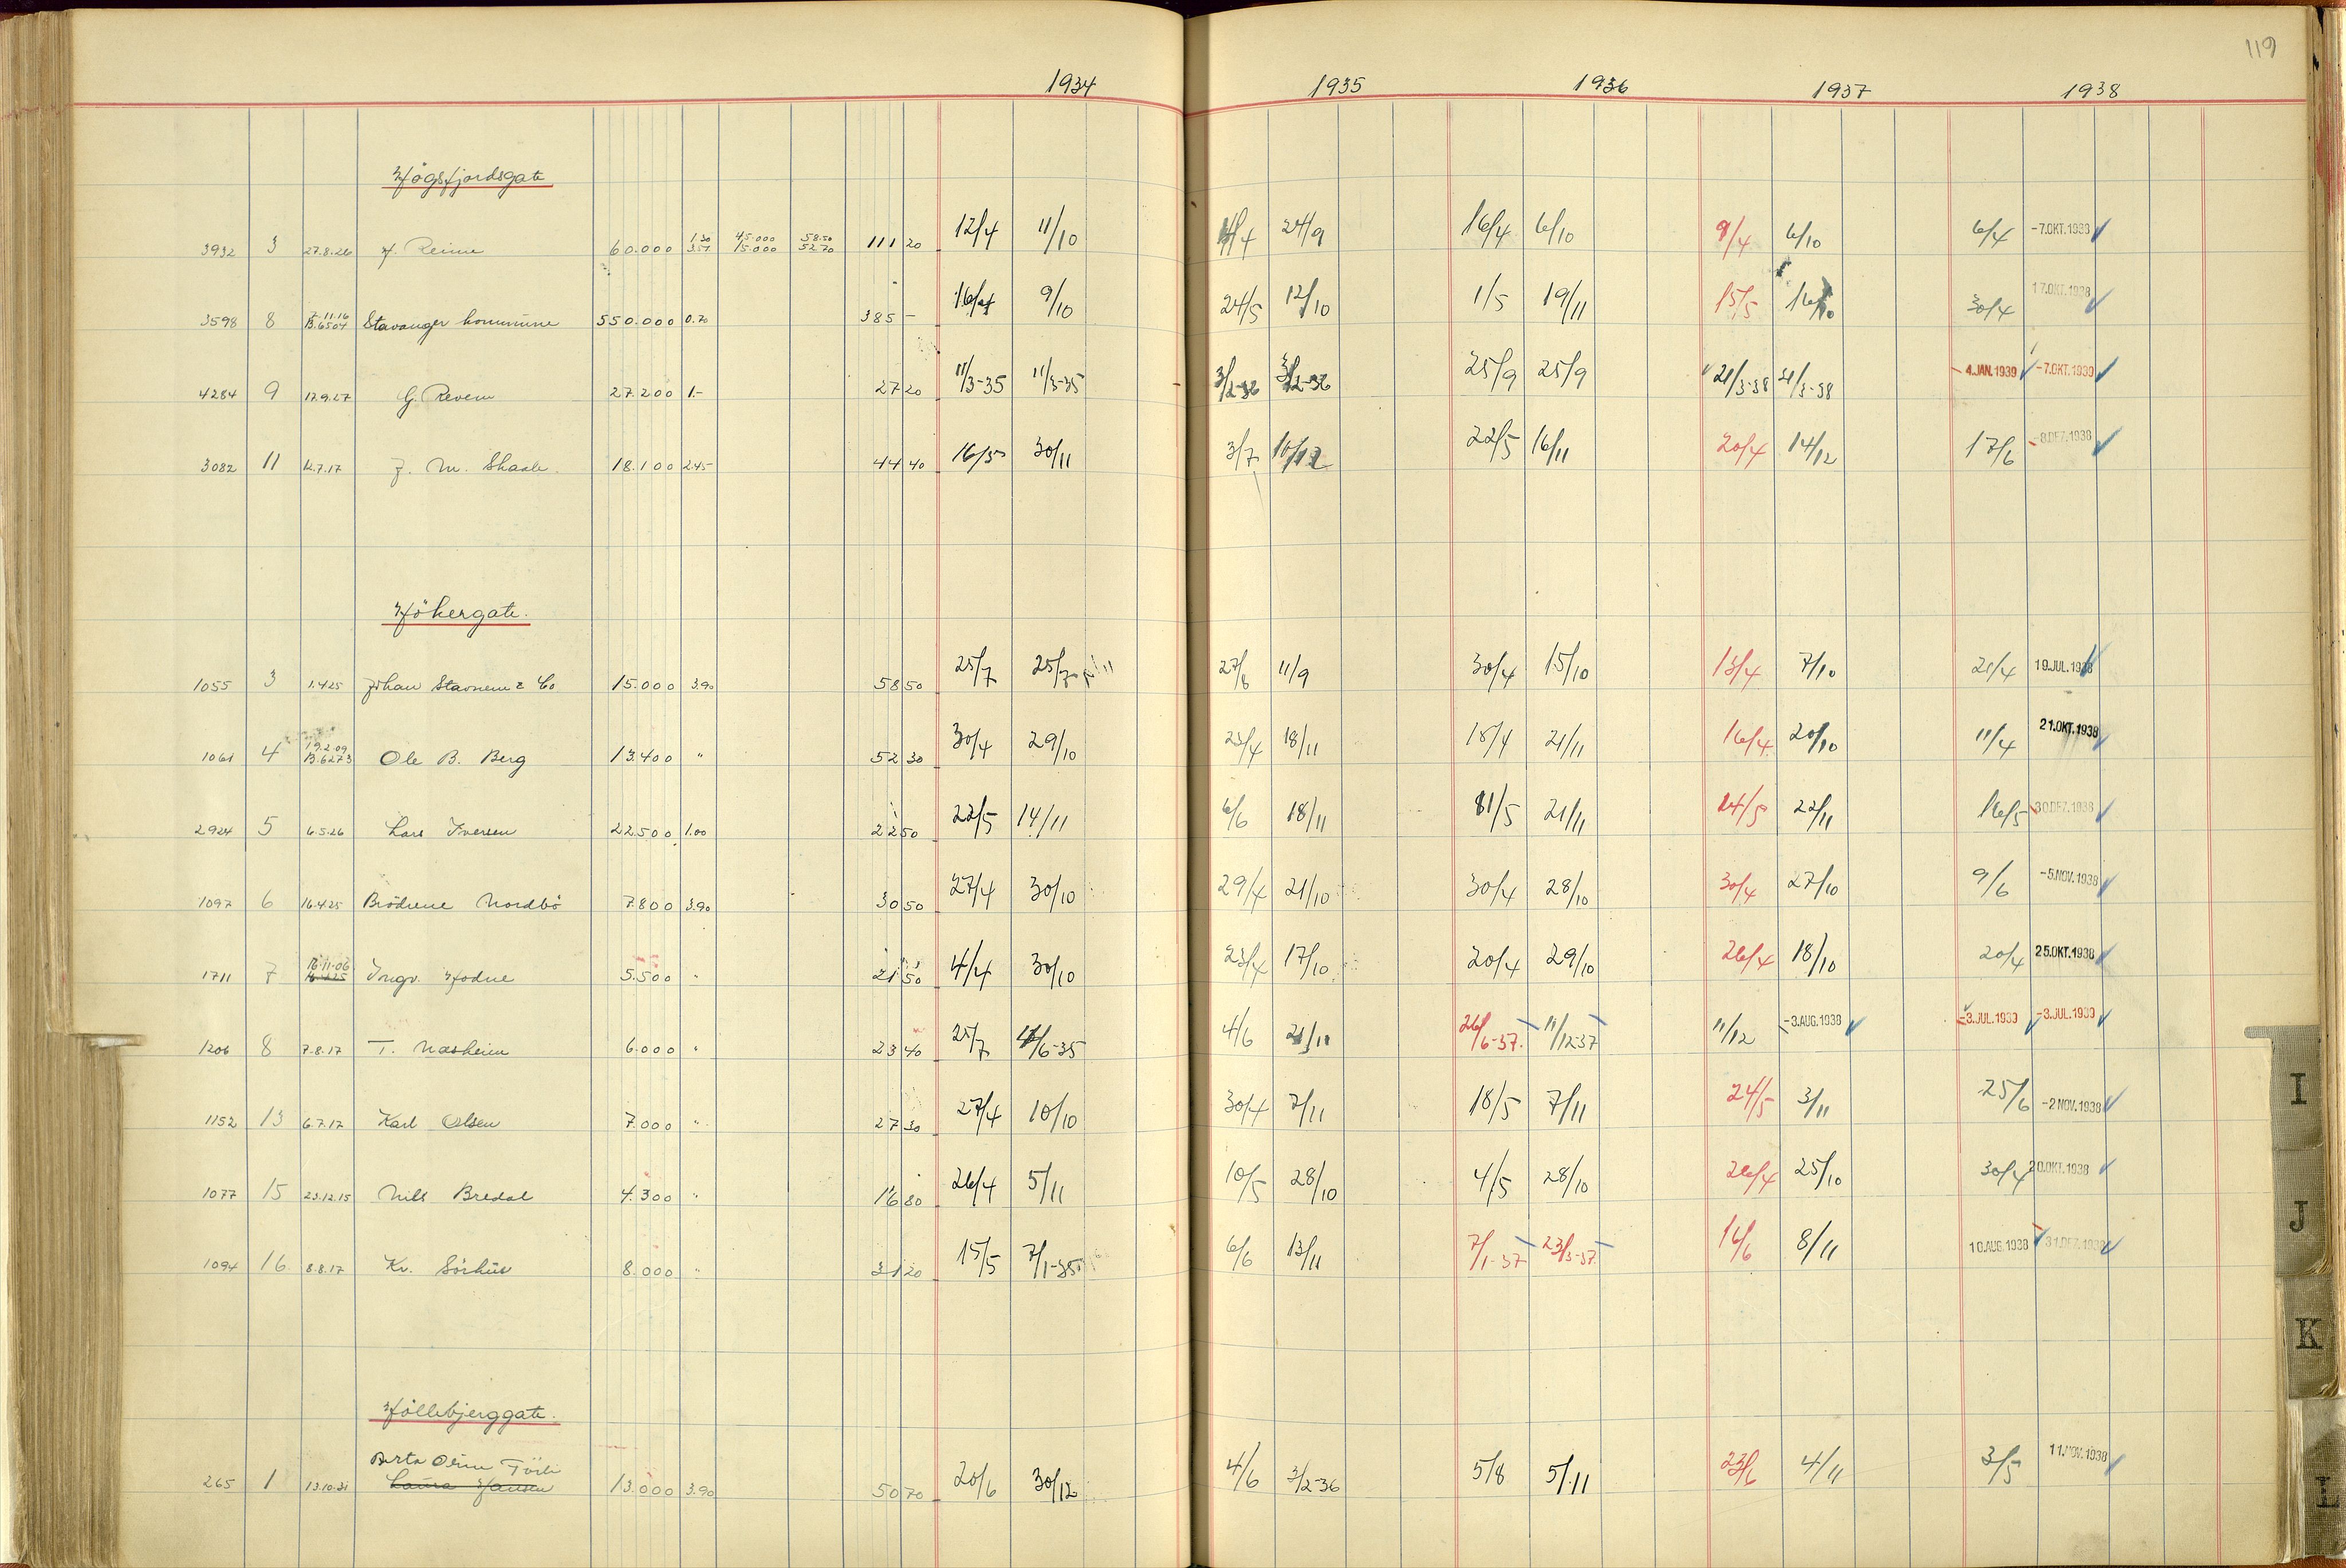 119
1934 1935 1936 1937 1938
Høgsfjordsgate
3932 3 27.8.26 H. Reime 60.000 1.30 3.51 45.000 15.000 58.50 52.70 111 20 12/4 11/10 24/9 16/4 6/10 9/4 6/10 6/4 -7.OKT.1938
3598 8 7.11.16 B.6504 Stavanger kommune 550.000 0.70 385 - 16/4 9/10 24/5 12/10 1/5 19/11 15/5 16/10 30/4 17.OKT.1938
4284 9 17.9.27 G. Revem 27.200 1.- 27 20 11/3-35 11/3-35 3/2-36 3/2-36 25/9 25/9 21/3-38 21/3-38 4.JAN.1939 -7.OKT.1939
3082 11 12.7.17 J. M. Skaale 18.100 2.45 44 40 16/5 30/11 3/7 10/12 22/5 16/11 20/4 14/12 17/6 -8.DEZ.1938
Høkergate.
1055 3 1.4.25 Johan Stavnem & Co 15.000 3.90 58 50 25/7 25/7 27/8 11/9 30/4 15/10 13/4 7/10 21/4 19.JUL.1938
1061 4 19.2.09 B.6273 Ole B. Berg 13.400 " 52 30 30/4 29/10 23/4 18/11 18/4 21/11 16/4 20/10 11/4 21.OKT.1938
2924 5 6.5.26 Lars Iversen 22.500 1.00 22 50 22/5 14/11 6/6 18/11 11/5 21/11 14/5 22/11 16/5 30.DEZ.1938
1097 6 16.4.25 Brödrene Nordbö 7.800 3.90 30 50 27/4 30/10 29/4 21/10 30/4 28/10 30/4 27/10 9/6 -5.NOV.1938
1711 7 16.11.06 Ingv. Hodne 5.500 " 21 50 4/4 30/10 23/4 17/10 20/4 29/10 26/4 18/10 20/4 25.OKT.1938
1206 8 7.8.17 T. Næsheim 6.000 " 23 40 25/7 4/6-35 4/6 21/11 26/6-37. 11/12-37 11/12 -3.AUG.1938 -3.JUL.1939 -3.JUL.1939
1152 13 6.7.17 Karl Olsen 7.000 " 27 30 27/4 10/10 30/4 7/11 18/5 7/11 24/5 3/11 25/6 -2 NOV.1938
1077 15 23.12.15 Nils Bredal 4.300 " 16 80 26/4 5/11 10/5 28/10 4/5 28/10 26/4 25/10 30/4 20.OKT.1938
1094 16 8.8.17 Kr. Sörhus 8.000 " 31 20 15/5 7/1-35 6/6 13/11 7/1-37 23/3-37. 16/6 8/11 10.AUG.1938 31.DEZ.1938
Höllebjerggate.
Berta Oline
265 1 13.10.31 Laura Hansen 13.000 3.90 50 70 20/6 30/12 4/6 3/2-36 5/8 5/11 23/6 4/11 3/5 11.NOV.1938
I
J
K
L